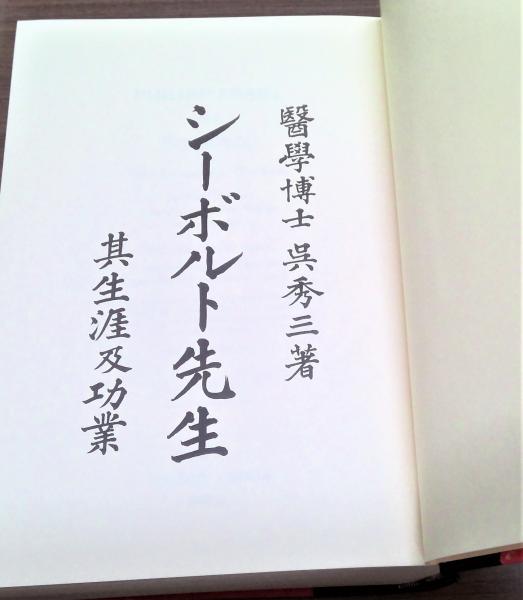 醫學博士 呉秀三著
シーボルト先生
其生涯及功業